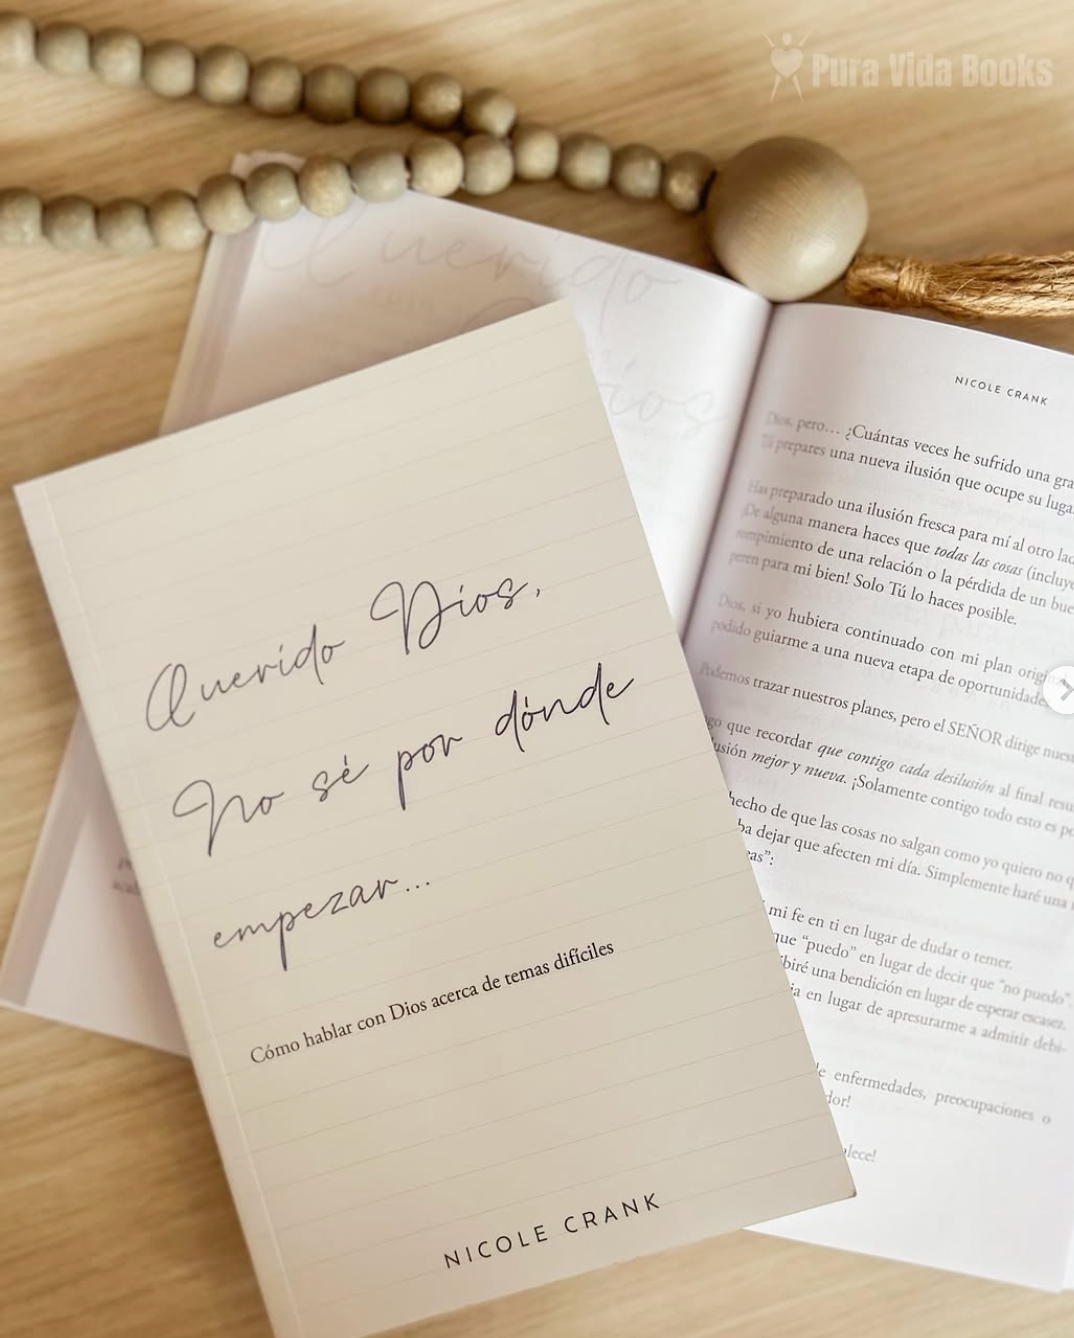 Pura Vida Books
Querido
Dios
NICOLE CRANK
Dios, pero… ¿Cuántas veces he sufrido una gra
Tú prepares una nueva ilusión que ocupe su luga
Has preparado una ilusión fresca para mí al otro lad
¡De alguna manera haces que todas las cosas (incluye
rompimiento de una relación o la pérdida de un bue
peren para mi bien! Solo Tú lo haces posible.
Dios, si yo hubiera continuado con mi plan origi
podido guiarme a una nueva etapa de oportunidade
Podemos trazar nuestros planes, pero el SEÑOR dirige nues
go que recordar que contigo cada desilusión al final resu
usión mejor y nueva. ¡Solamente contigo todo esto es po
hecho de que las cosas no salgan como yo quiero no q
ba dejar que afecten mi día. Simplemente haré una
eas”:
mi fe en ti en lugar de dudar o temer.
que “puedo” en lugar de decir que “no puedo”.
ibiré una bendición en lugar de esperar escasez.
ia en lugar de apresurarme a admitir debi-
de enfermedades, preocupaciones o
dor!
alece!
Querido Dios,
No sé por dónde
empezar...
Cómo hablar con Dios acerca de temas difíciles
NICOLE CRANK